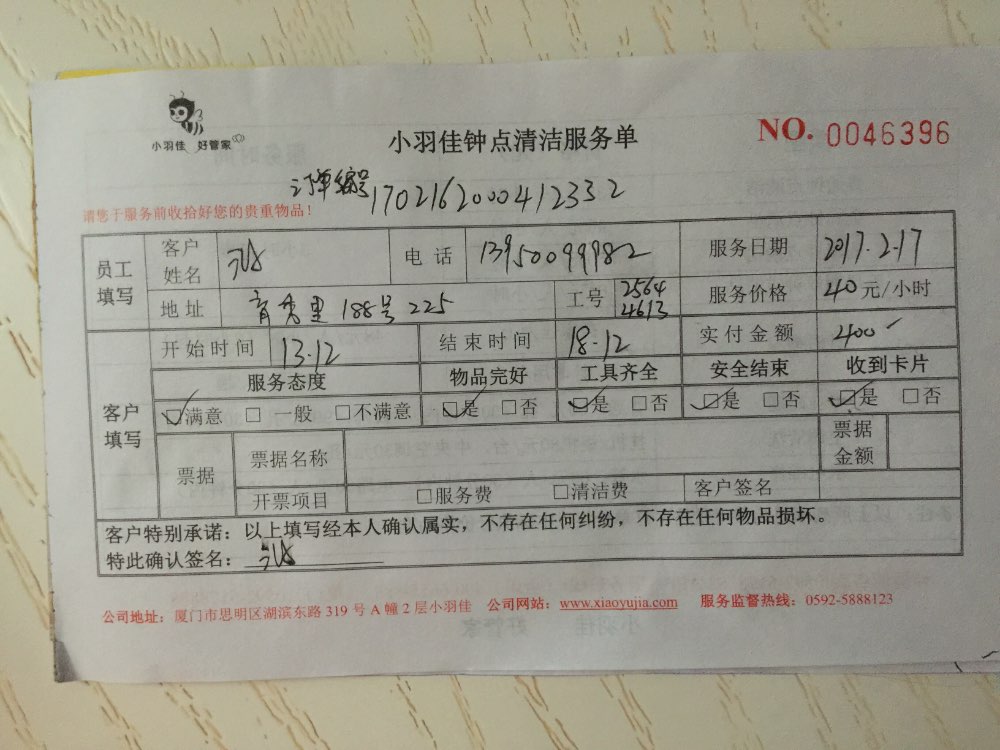 小羽佳 好管家
小羽佳钟点清洁服务单
NO. 0046396
订单编号 1702162000412332
请您于服务前收拾好您的贵重物品!
员工填写
客户姓名 电话 13950099982 服务日期 2017.2.17
地址 育秀里 188号 225 工号 2564 4613 服务价格 40元/小时
客户填写
开始时间 13.12 结束时间 18.12 实付金额 400
服务态度 物品完好 工具齐全 安全结束 收到卡片
☑满意 □一般 □不满意 ☑是 □否 ☑是 □否 ☑是 □否 ☑是 □否
票据 票据名称 票据金额
开票项目 □服务费 □清洁费 客户签名
客户特别承诺:以上填写经本人确认属实,不存在任何纠纷,不存在任何物品损坏。
特此确认签名:
公司地址:厦门市思明区湖滨东路 319 号 A 幢 2 层小羽佳 公司网站:www.xiaoyujia.com 服务监督热线:0592-5888123